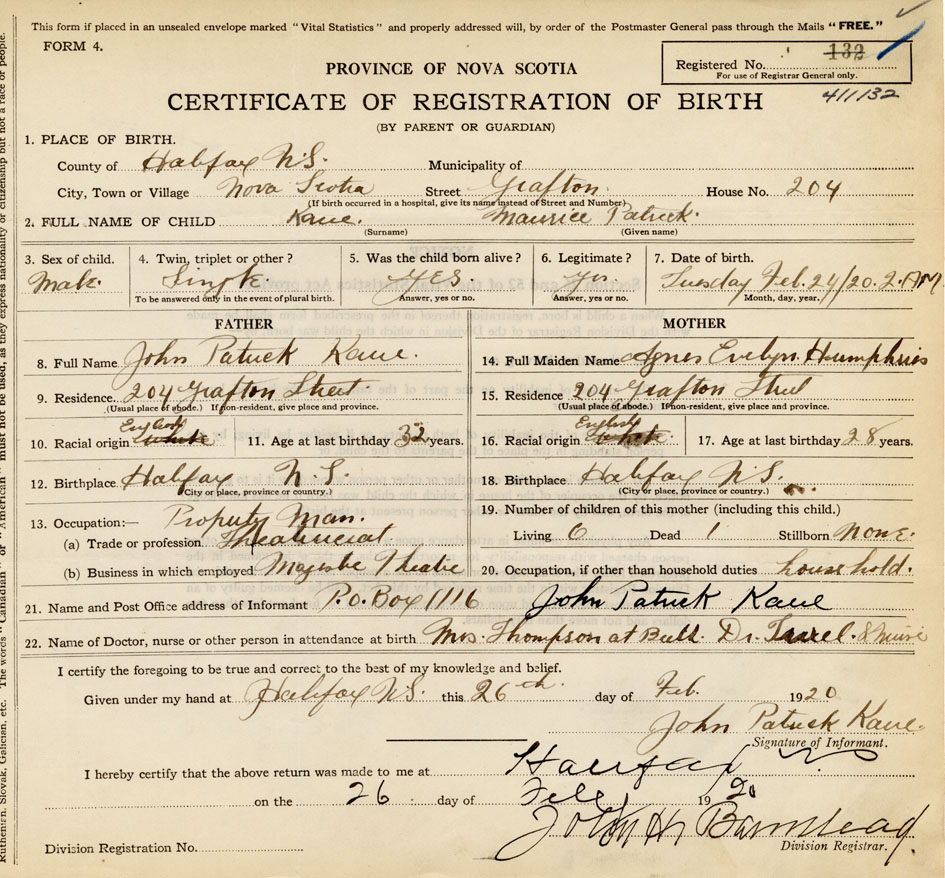 This form if placed in an unsealed envelope marked "Vital Statistics" and properly addressed will, by order of the Postmaster General pass through the Mails "FREE."
FORM 4.
Registered No. 132
For use of Registrar General only.
411132
PROVINCE OF NOVA SCOTIA
CERTIFICATE OF REGISTRATION OF BIRTH
(BY PARENT OR GUARDIAN)
1. PLACE OF BIRTH.
County of Halifax N.S. Municipality of
City, Town or Village Nova Scotia Street Grafton House No. 204
(If birth occurred in a hospital, give its name instead of Street and Number)
2. FULL NAME OF CHILD Kane. Maurice Patrick.
(Surname) (Given name)
3. Sex of child. 4. Twin, triplet or other? 5. Was the child born alive? 6. Legitimate? 7. Date of birth.
Male. Single. YES. Yes. Tuesday Feb. 24/20. 2. A.M.
To be answered only in the event of plural birth. Answer, yes or no. Answer, yes or no. Month, day, year.
FATHER
8. Full Name John Patrick Kane.
9. Residence. 204 Grafton Street.
(Usual place of abode.) If non-resident, give place and province.
10. Racial origin English White 11. Age at last birthday 32 years.
12. Birthplace Halifax N.S.
(City or place, province or country.)
13. Occupation:— Property Man.
(a) Trade or profession. Theatrical
(b) Business in which employed Majestic Theatre
MOTHER
14. Full Maiden Name Agnes Evelyn Humphries
15. Residence 204 Grafton Street
(Usual place of abode.) If non-resident, give place and province.
16. Racial origin English White 17. Age at last birthday 28 years.
18. Birthplace Halifax N.S.
(City or place, province or country.)
19. Number of children of this mother (including this child.)
Living 6 Dead 1 Stillborn None.
20. Occupation, if other than household duties household.
21. Name and Post Office address of Informant P.O. Box 1116 John Patrick Kane
22. Name of Doctor, nurse or other person in attendance at birth Mrs. Thompson at Dr.
I certify the foregoing to be true and correct to the best of my knowledge and belief.
Given under my hand at Halifax N.S. this 26th. day of Feb. 1920
John Patrick Kane.
Signature of Informant.
I hereby certify that the above return was made to me at Halifax NS
on the 26 day of Feb 1920
John H. Barnstead
Division Registrar.
Division Registration No.
Ruthenian, Slovak, Galician, etc. The words "Canadian" or "American" must not be used, as they express nationality or citizenship but not a race or people.